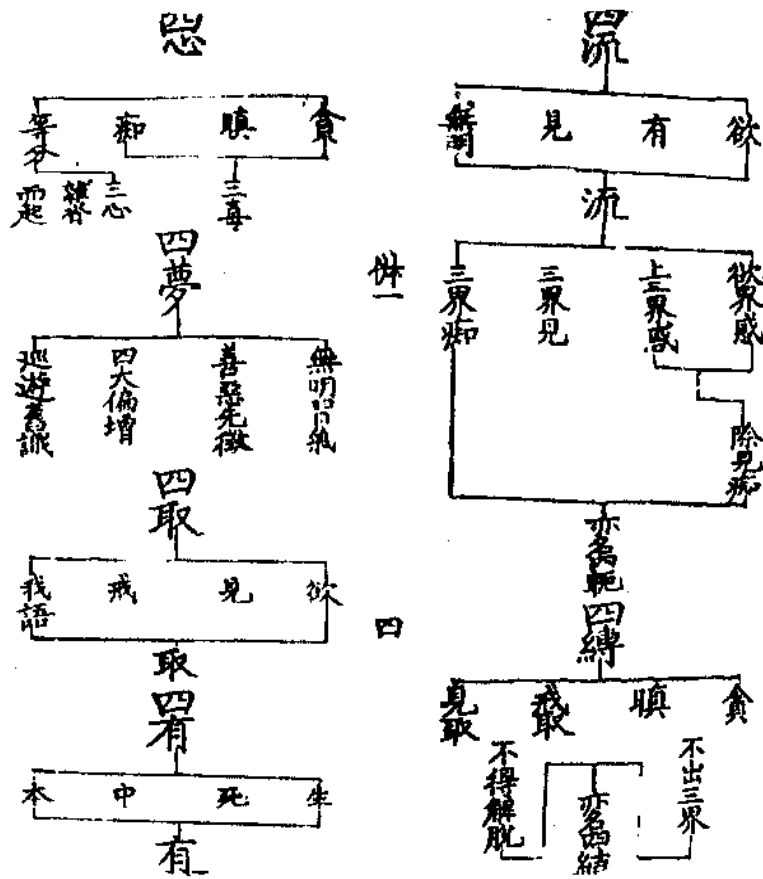 四流
欲
有
見
無明
流
欲界惑
上二界惑
三界見
三界痴
除見痴
亦為軛
四縛
貪
瞋
戒取
見取
不出三界
亦為結
不得解脱
併一
四
四忿
貪
瞋
痴
等分
三毒
三心
雜沓
而起
四夢
無明習氣
善惡先徵
四大偏增
巡遊舊識
四取
欲
見
戒
我語
取
四有
生
死
中
本
有